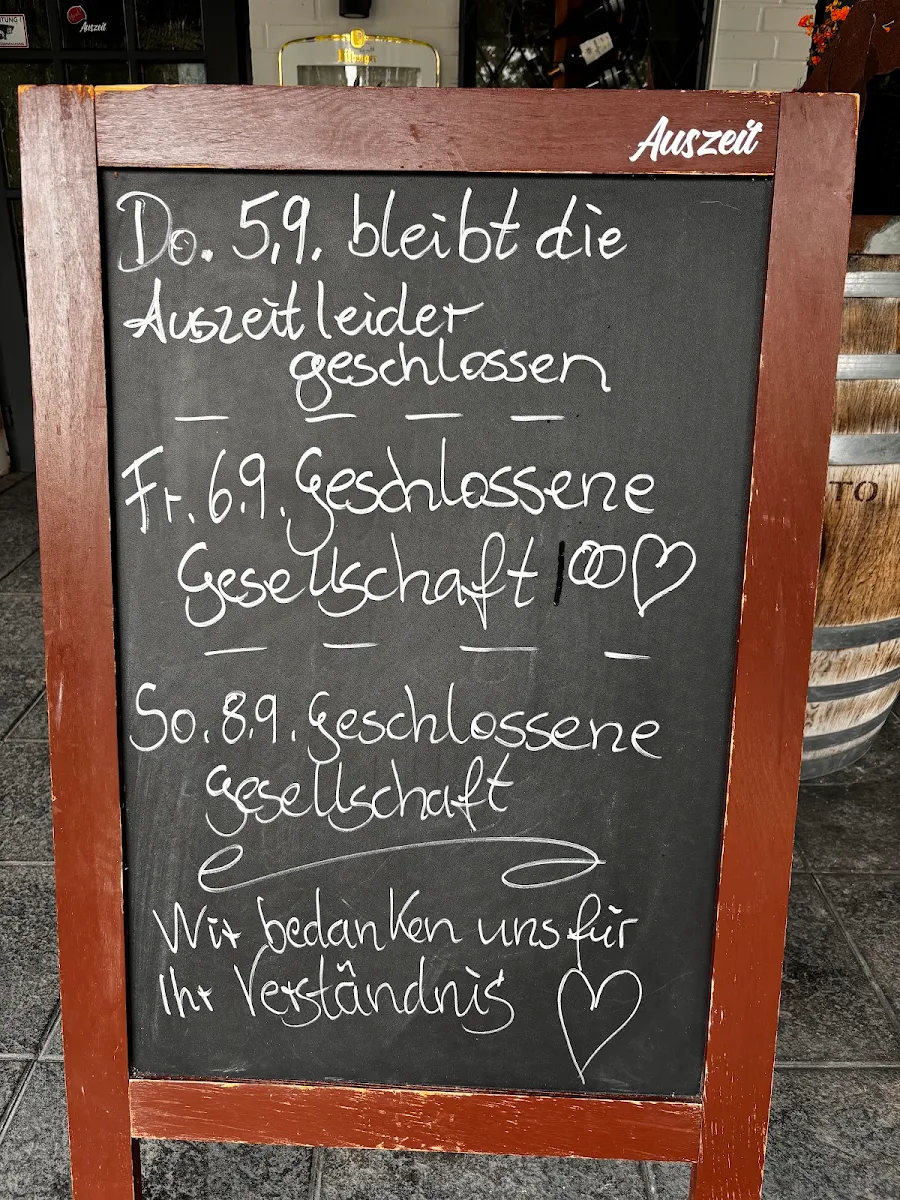 Auszeit
Bitburger
Auszeit
Do. 5.9. bleibt die
Auszeit leider
geschlossen
Fr. 6.9. Geschlossene
Gesellschaft
So. 8.9. Geschlossene
gesellschaft
Wir bedanken uns für
Ihr Verständnis
TO